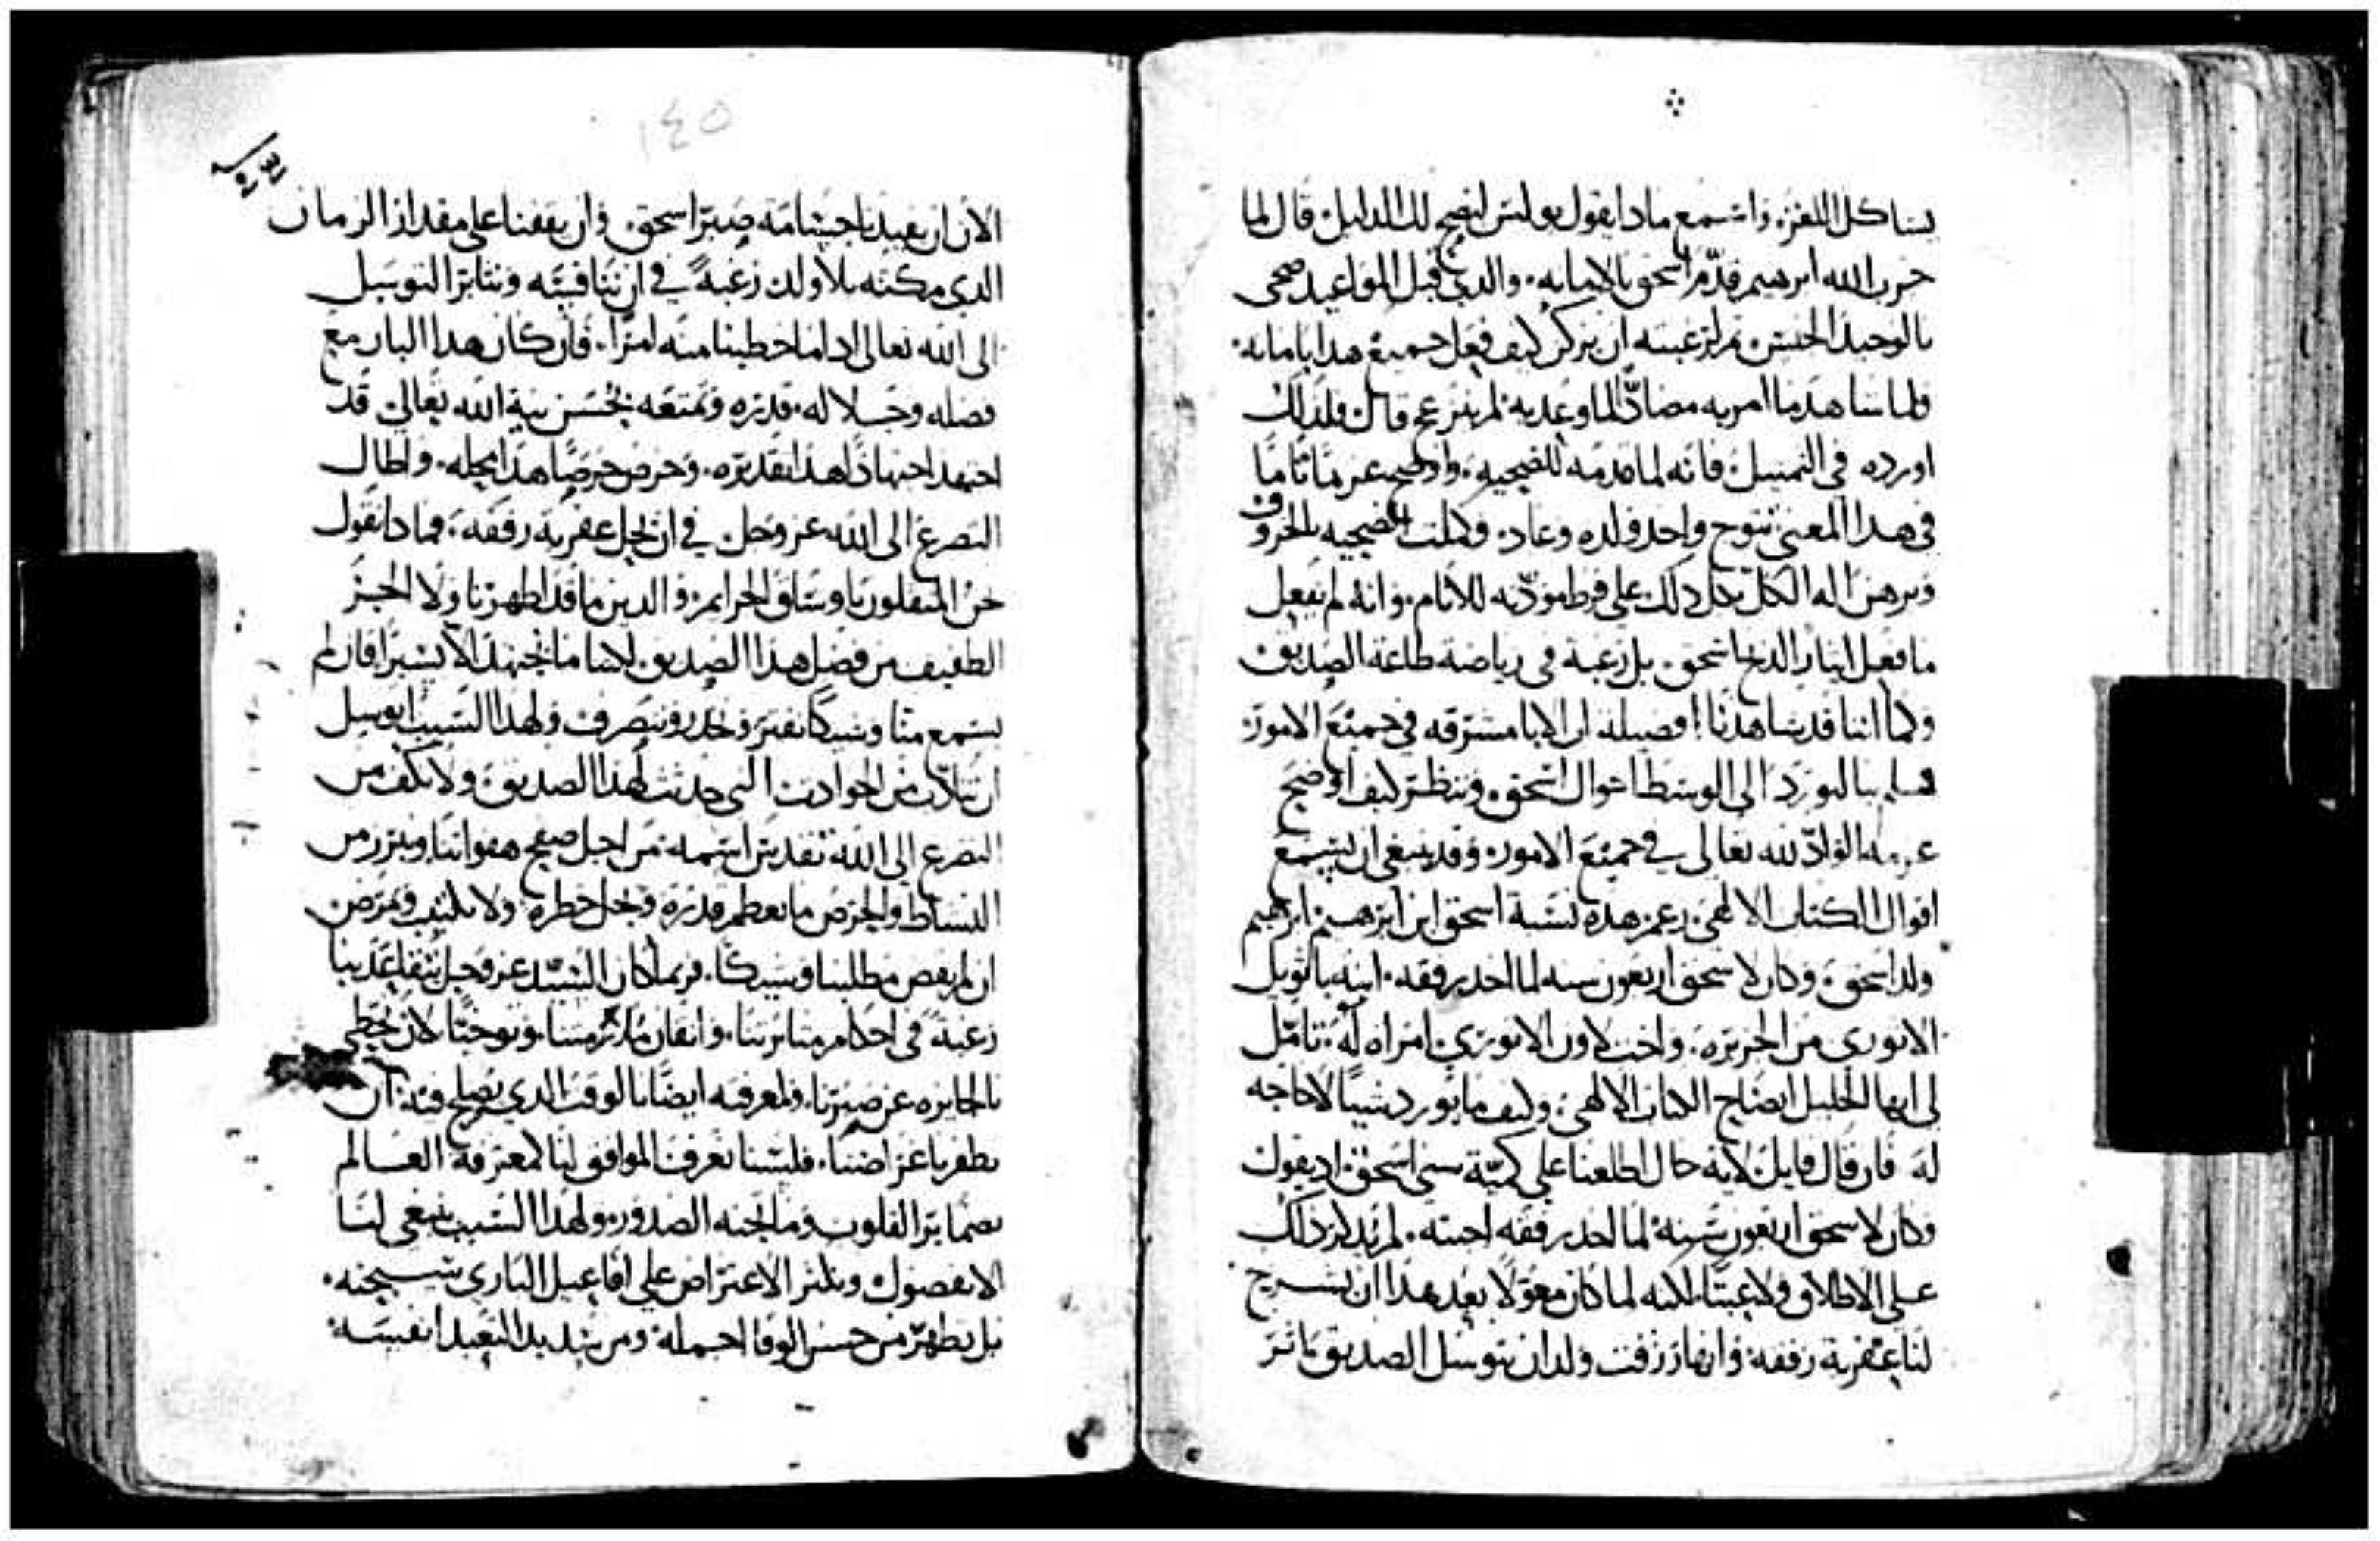 يشاكل اللغز. واستمع ماذا يقول بولس ليضح لك الدليل. قال لما
جرب الله ابرهيم قدم اسحق بالامانه. والذي قبل المواعيد ضحى
بالوحيد الجنس. ثم لرغبته ان يذكر كيف فعل جميع هذا بامانه.
ولما شاهد ما امر به مضاد لما وعد به لم ينزعج قال فلذلك
اورده في التمثيل. فانه لما قدمه للضحيه. واوضح عزما تاما
في هذا المعنى تتوج واخذ ولده وعاد. وكملت الضحيه بالخروف
وبرهن اله الكل بكل ذلك على فرط مودته للانام. وانه لم يفعل
ما فعل ايثار الذبح اسحق. بل رغبة في رياضة طاعة الصديق
وكما اننا قد شاهدنا فضيلة ان الابا مشرقه في جميع الامور.
فهلم بنا لنورد الى الوسط احوال اسحق. وننظر كيف اوضح
عزمه الواد لله تعالى في جميع الامور. وقد ينبغي ان يستمع
اقوال الكتاب الالهي. زعم هذه نسبة اسحق ابن ابرهيم ابرهيم
ولد اسحق. وكان لاسحق اربعون سنه لما اخذ رفقه. ابنه باثويل
الانوري من الجزيره. واخت لاون الانوري. امراه له. تامل
لي ايها الخليل ايضاح الكتاب الالهي. وكيف ما يورد شيا لا حاجه
له فان قال قايل لايه حال اطلعنا على كمية سني اسحق. اذ يقول
وكان لاسحق اربعون سنه لما اخذ رفقه اجبته. لم يذكر ذلك
على الاطلاق ولا عبثا. لكنه لما كان معولا بعد هذا ان يشرح
لنا عقرية رفقه. وانها رزقت ولدا من توسل الصديق باثر
١٤٥
الان ان يفيدنا جسامة صبر اسحق. وان يقفنا على مقدار الزمان
الذي مكثه بلا ولد. رغبة في ان ننافسه ونثابر التوسل
الى الله تعالى اذا ما خطبنا منه امرا. فان كان هذا البار مع
فضله وجلالة قدره وتمتعه بحسن نية الله تعالى قد
اجتهد اجتهادا هذا تقديره. وحرص حرصا هذا محله. واطال
التضرع الى الله عز وجل في ان يحل عقرية رفقه. فماذا نقول
نحن المثقلون باوساق الجرايم. والذين ما قد اظهرنا ولا الجز
الطفيف من فضل هذا الصديق. لكننا ما نجتهد الا يسيرا فان لم
يستمع منا وشيكا نفتر ونخدر وننصرف ولهذا السبب اتوسل
ان نتادب من الحوادث التي حدثت لهذا الصديق. ولا نكف من
التضرع الى الله تقدس اسمه من اجل صفح هفواتنا ونبرز من
النشاط والحرص ما يعظم قدره ويجل خطره ولا نكتيب ونمرض
ان لم يقض مطلبنا وشيكا. فربما كان السيد عز وجل
رغبة في احكام مثابرتنا. واتقان ملازمتنا. وتوخيا لان نحظى
بالجايزه عن صبرنا. ولمعرفته ايضا بالوقت الذي يصلح فيه. ان
نظفر باغراضنا. فلسنا نعرف الموافق لنا كمعرفة العالم
بضماير القلوب وما تجنه الصدور. ولهذا السبب ينبغي لنا
الا نفضول ونكثر الاعتراض على افاعيل الباري سبحنه.
بل نظهر من حسن الوفا اجمله. ومن شديد التعبد انفسه.